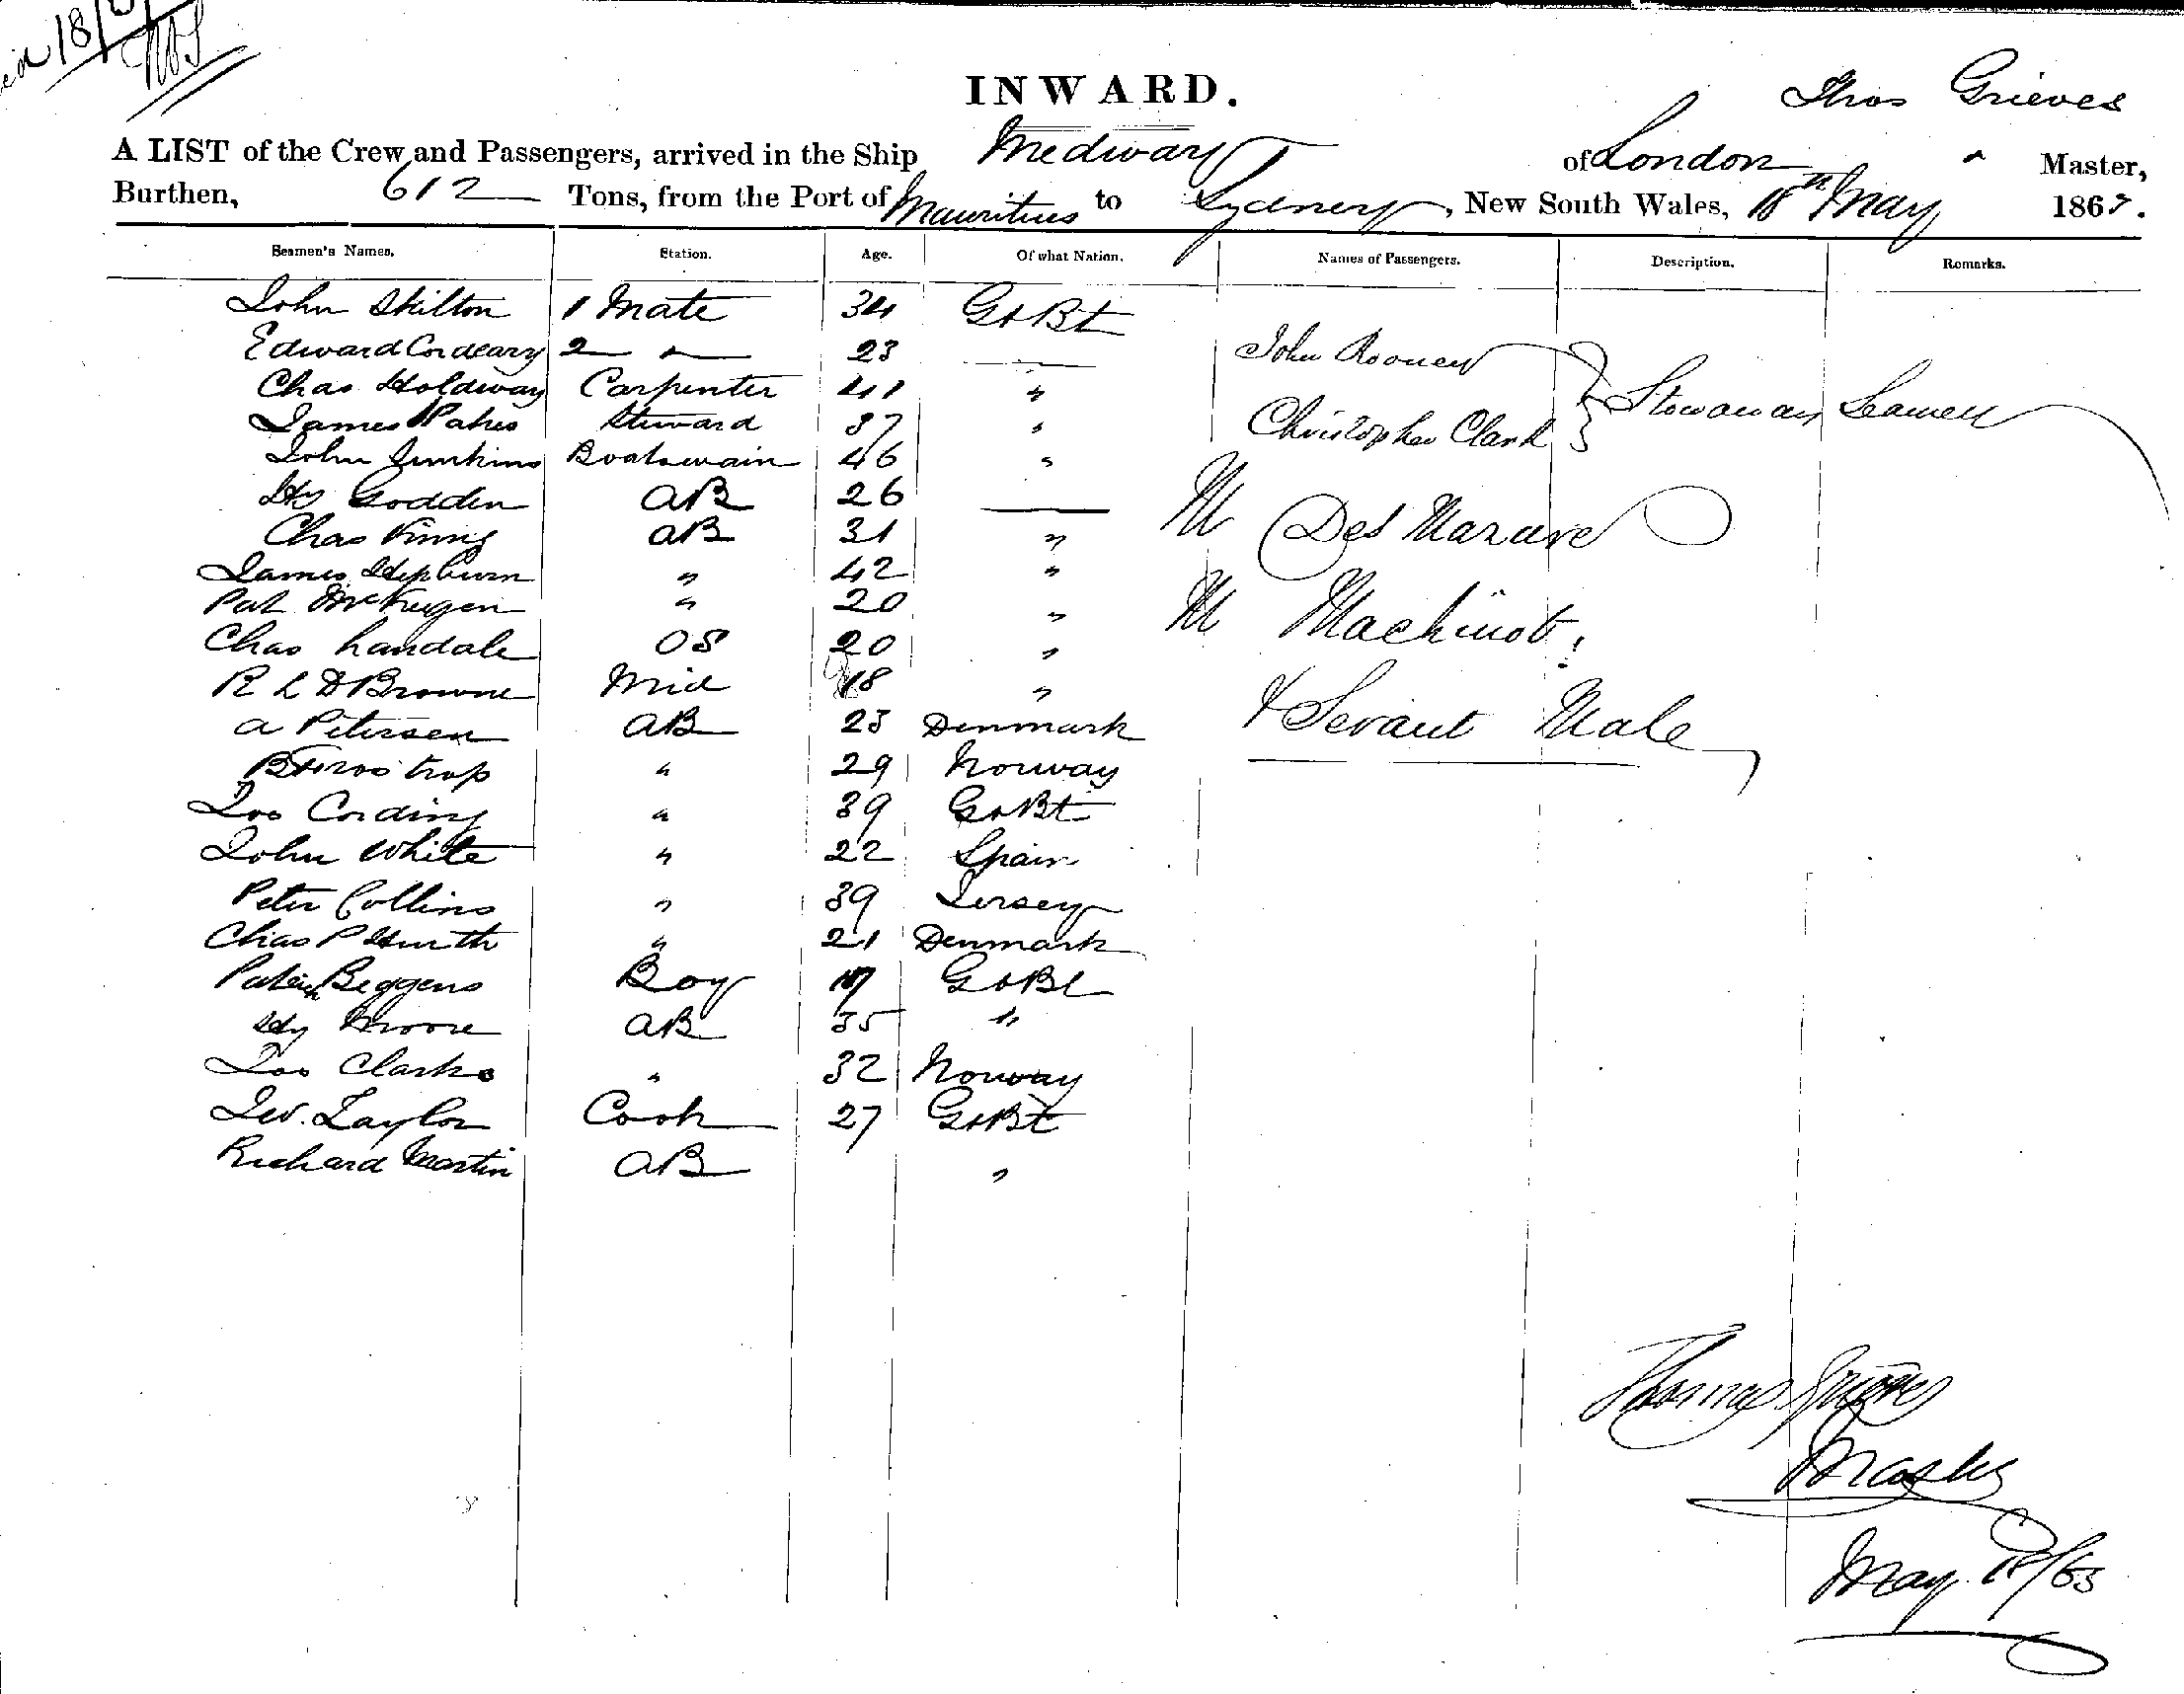 18/
INWARD.
Thos Grieves
A LIST of the Crew and Passengers, arrived in the Ship Medway of London " Master,
Burthen, 612 Tons, from the Port of Mauritius to Sydney, New South Wales, 18th May 1863.
Seamen's Names. Station. Age. Of what Nation. Names of Passengers. Description. Remarks.
John Skilton 1 Mate 34 Gt Bt
Edward Cordeary 2 " 23 —
John Rooney
Chas Holdway Carpenter 41 "
Stowaway Seamen
James Pakes Steward 37 "
Christopher Clark
John Junkins Boatswain 46 "
Hy Godden AB 26 —
M Des Mazure
Chas Vining AB 31 "
James Hepburn " 42 "
Pat McKeygen " 20 "
M Machinot
Chas Landale OS 20 "
R L D Browne Mid 18 "
& Servant Male
A Petersen AB 23 Denmark
" 29 Norway
Jos Cording " 39 Gt Bt
John White " 22 Spain
Peter Collins " 39 Jersey
Chas P " 21 Denmark
Patrick Beggens Boy 17 Gt Bt
Hy Moore AB 35 "
Jas Clarke " 32 Norway
Jw. Taylor Cook 27 Gt Bt
Richard Martin AB "
Thomas Grieves
Master
May 18/63